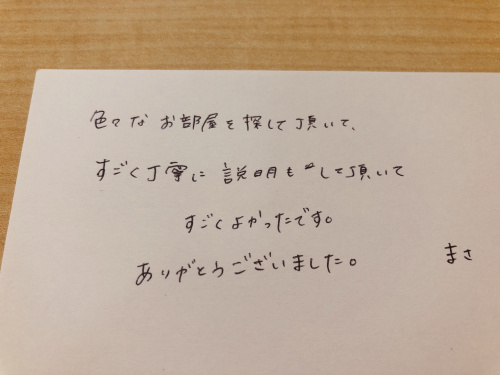 色々なお部屋を探して頂いて、
すごく丁寧に説明もして頂いて
すごくよかったです。
ありがとうございました。
まさ